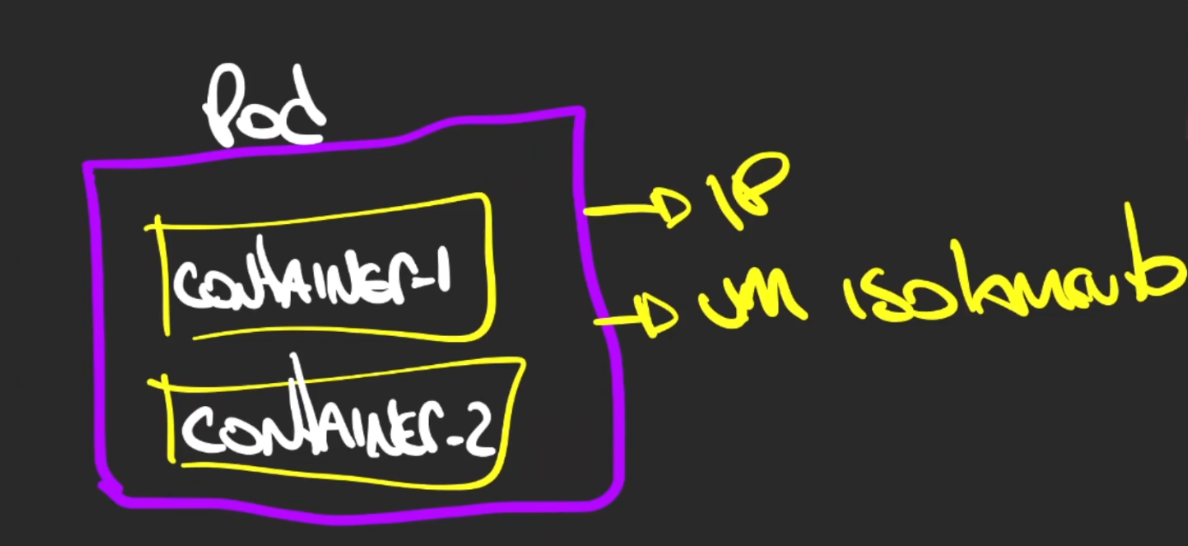 Pod
CONTAINER-1
CONTAINER-2
IP
um isolamento